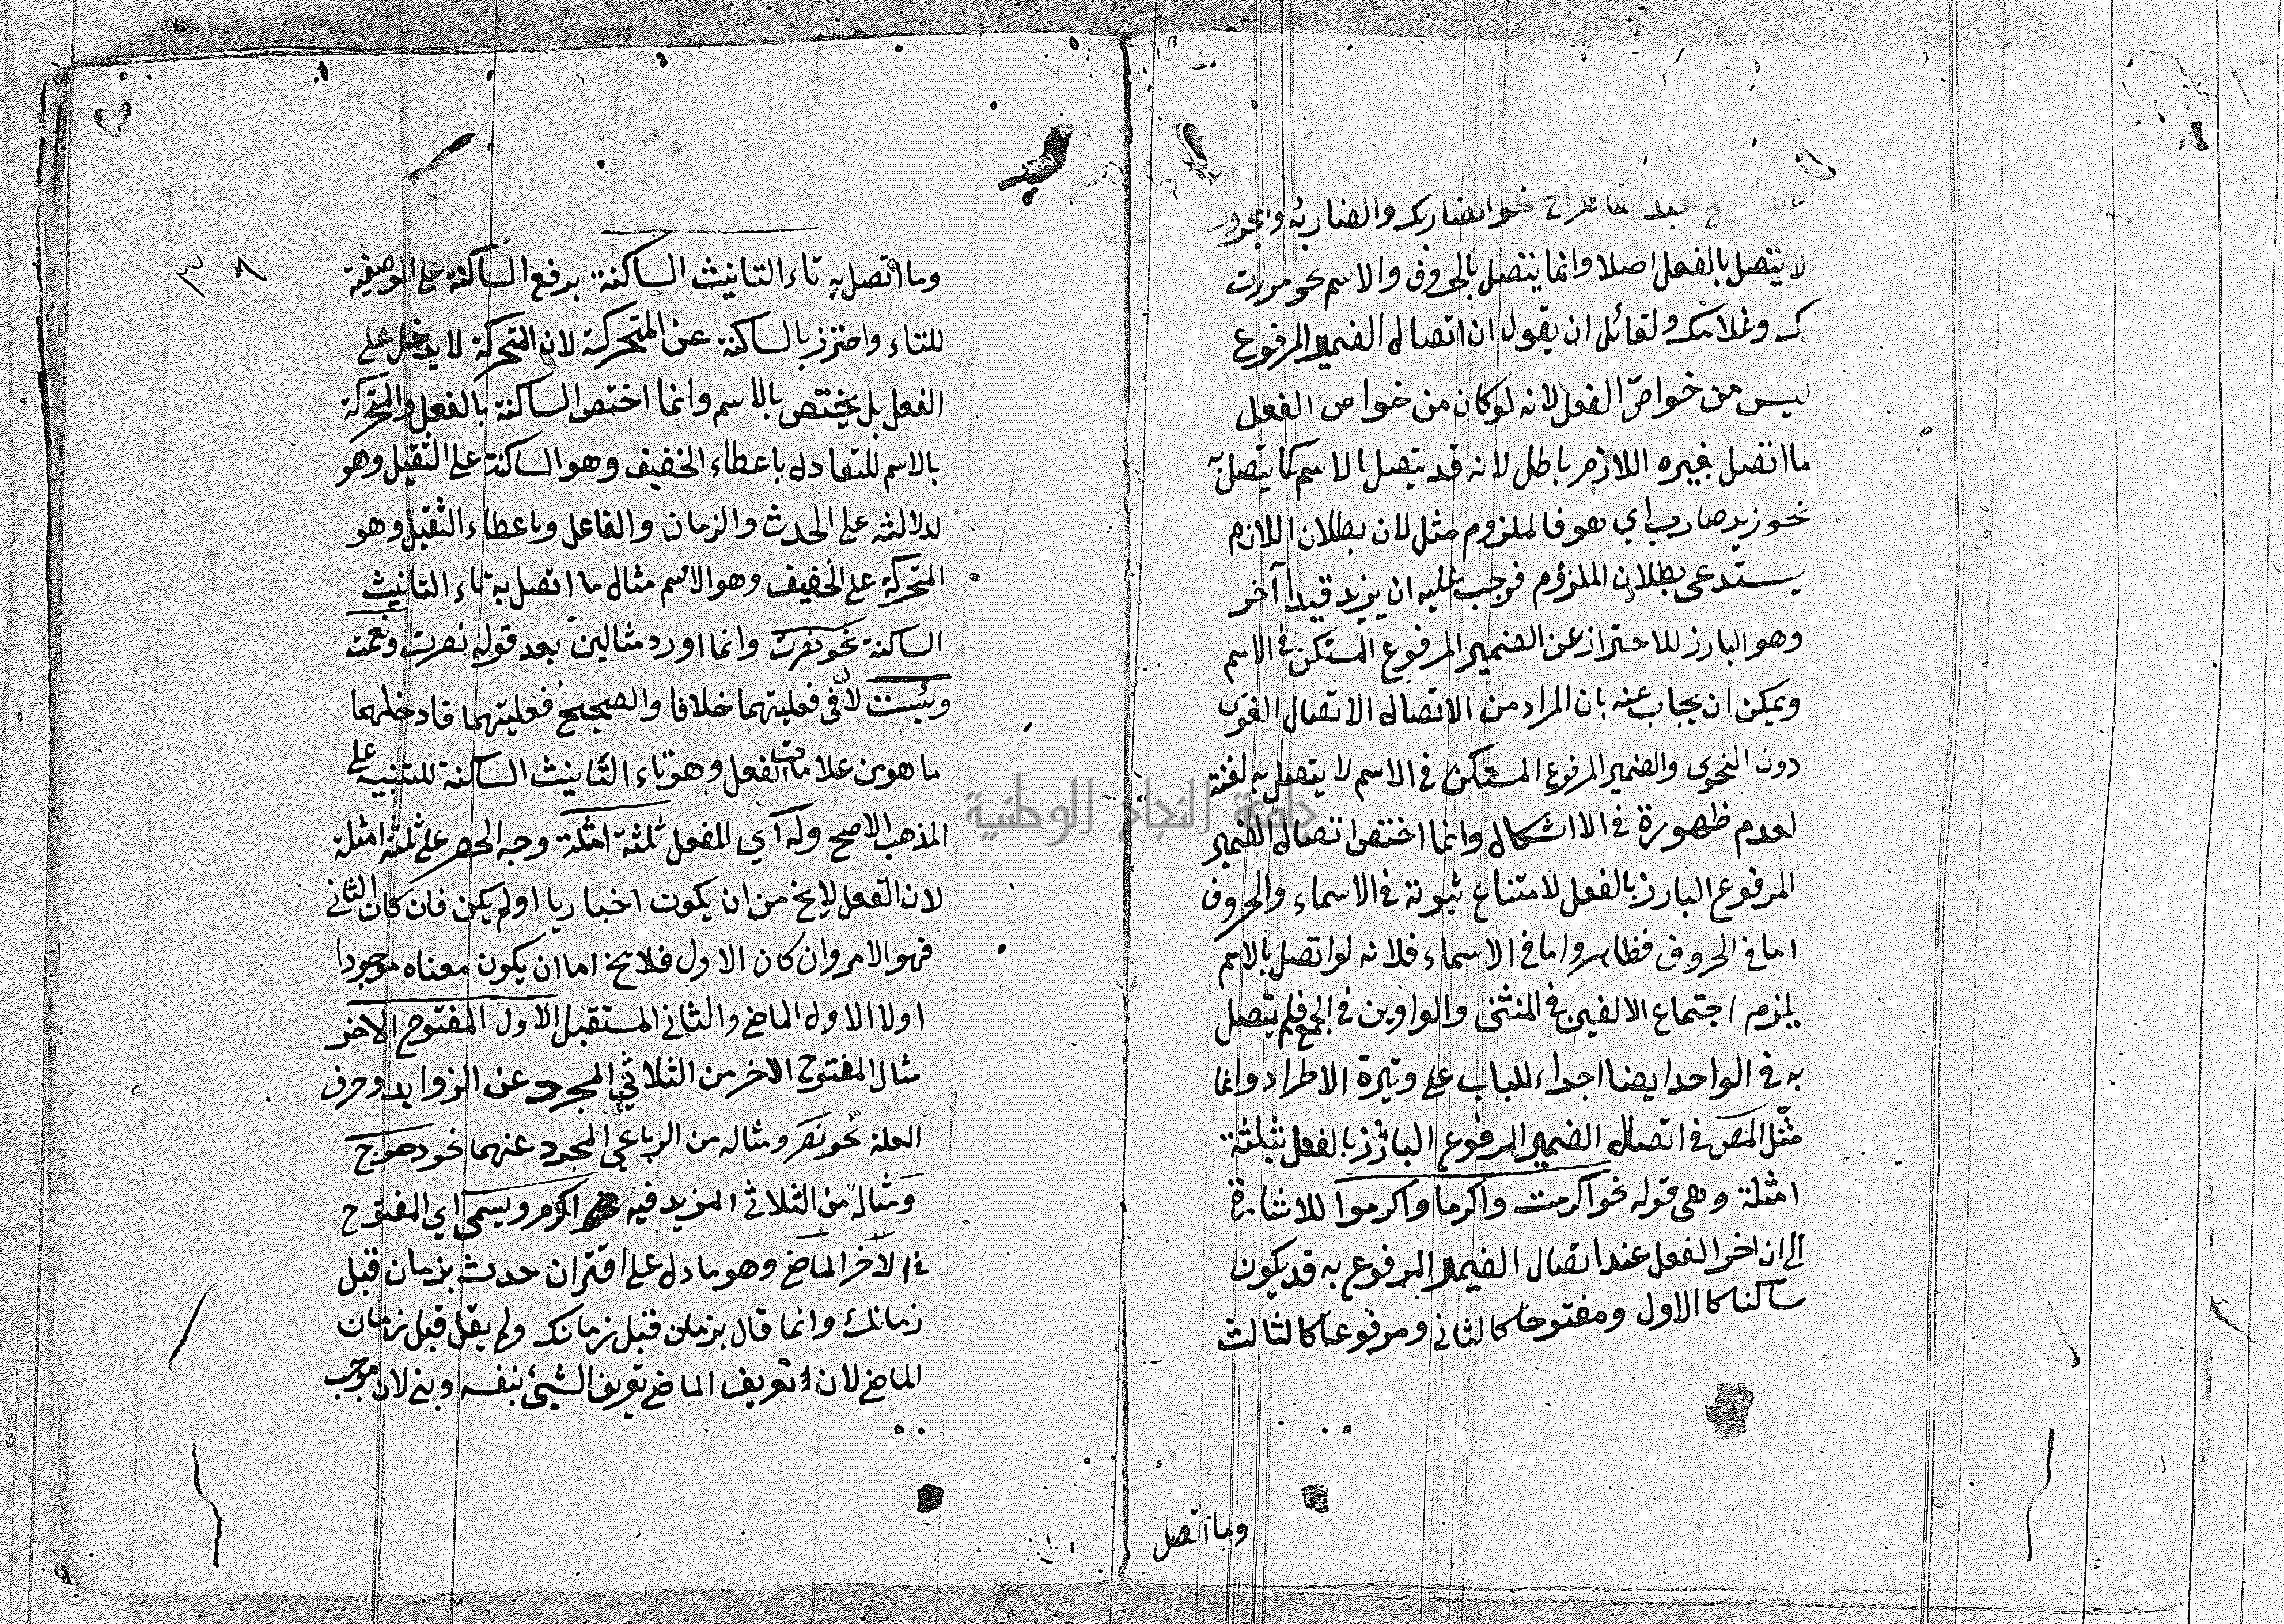 نحو الضاربك والضاربه والمجرور
لا يتصل بالفعل اصلا وانما يتصل بالحروف والاسم نحو مررت
بك وغلامك ولقائل ان يقول ان اتصال الضمير المرفوع
ليس من خواصّ الفعل لانه لو كان من خواص الفعل
ما اتصل بغيره اللازم باطل لانه قد يتصل بالاسم كما يتصل به
نحو زيد ضارب اي هو فالملزوم مثل لان بطلان اللازم
يستدعى بطلان الملزوم فوجب عليه ان يزيد قيدا آخر
وهو البارز للاحتراز عن الضمير المرفوع المستكن في الاسم
ويمكن ان يجاب عنه بان المراد من الاتصال الاتصال اللغوى
دون النحوى والضمير المرفوع المستكن في الاسم لا يتصل به لغتة
لعدم ظهورة في الا اشكال وانما اختص اتصال الضمير
المرفوع البارز بالفعل لامتناع ثبوته في الاسماء والحروف
اما في الحروف فظاهر واما في الاسماء فلانه لو اتصل بالاسم
يلزم اجتماع الالفين في المثنى والواوين في الجمع فلم يتصل
به في الواحد ايضا اجراء للباب على وتيرة الاطراد وانما
مثّل المص في اتصال الضمير المرفوع البارز بالفعل بثلثة
امثلة وهى قوله نحو اكرمت واكرما واكرموا للاشارة
الى ان اخر الفعل عند اتصال الضمير المرفوع به قد يكون
ساكنا كالاول ومفتوحا كالثاني ومرفوعا كالثالث
وما اتصل
وما اتصل به تاء التانيث الساكنة برفع الساكنة على الوصفية
للتاء واحترز بالساكنة عن المتحركة لان المتحركة لا يدخل على
الفعل بل يختص بالاسم وانما اختص الساكنة بالفعل والمتحركة
بالاسم للتعادل باعطاء الخفيف وهو الساكنة على الثقيل وهو
لدلالته على الحدث والزمان والفاعل وباعطاء الثقيل وهو
المتحركة على الخفيف وهو الاسم مثال ما اتصل به تاء التانيث
الساكنة نحو نصرت وانما اورد مثالين بعد قوله نصرت ونعمت
وبئست لان في فعليتهما خلافا والصحيح فعليتهما فادخلهما
ما هو من علامات الفعل وهو تاء التانيث الساكنة للتنبيه على
المذهب الاصح وله اي للفعل ثلثة امثلة وجه الحصر على ثلثة امثلة
لان الفعل لا يخ من ان يكون اخباريا او لم يكن فان كان الثاني
فهو الامر وان كان الاول فلا يخ اما ان يكون معناه موجودا
اولا الاول الماضي والثاني المستقبل الاول المفتوح الاخر
مثال المفتوح الاخر من الثلاثي المجرد عن الزوايد وحرف
العلة نحو نصر ومثاله من الرباعي المجرد عنهما نحو دحرج
ومثاله من الثلاثي المزيد فيه اكرم ويسمى اي المفتوح
الاخر الماضي وهو ما دل على اقتران حدث بزمان قبل
زمانك وانما قال بزمان قبل زمانك ولم يقل قبل زمان
الماضي لان تعريف الماضي تعريف الشيئ بنفسه وبني لان موجب
٣٨
جامعة النجاح الوطنية